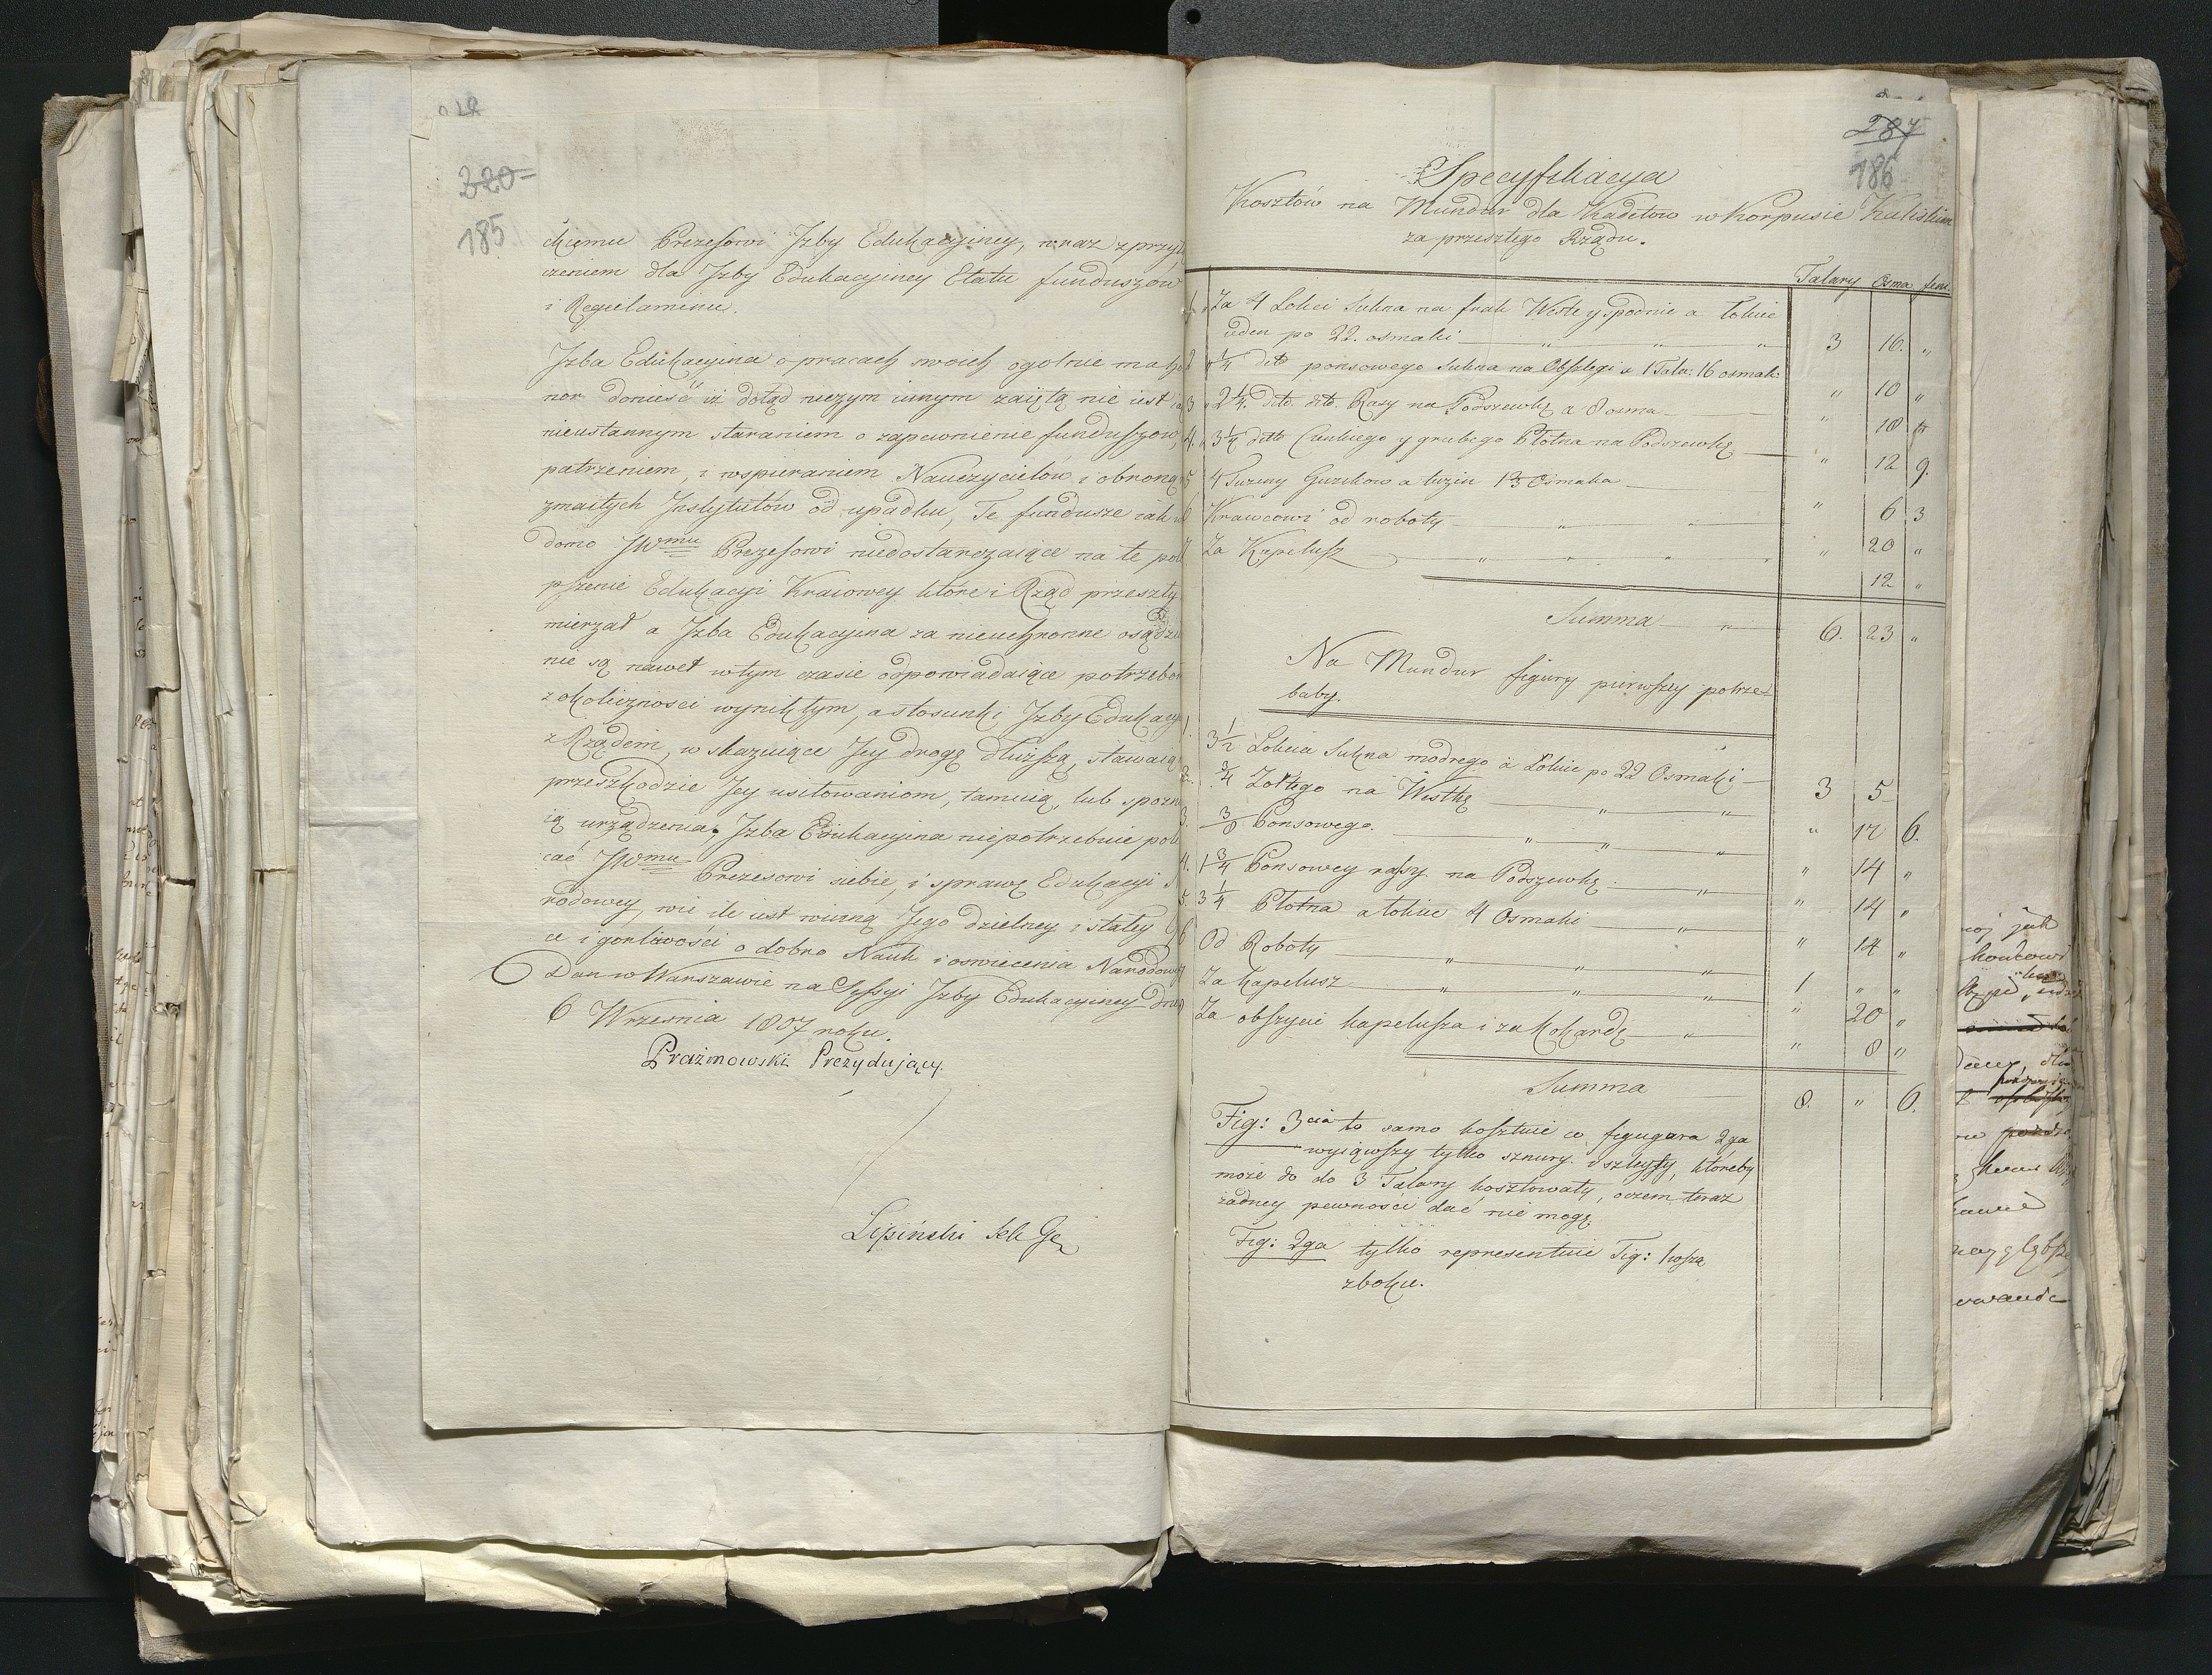 220
185
ckiemu Prezesowi Izby Edukacyiney, wraz z przyłą
czeniem dla Izby Edukacyiney Etatu funduszów
i Regulaminu.
Izba Edukacyina o pracach swoich ogolnie ma ho
nor donieść iż dotąd niczym innym zaiętą nie iest
nieustannym staraniem o zapewnienie funduszow,
patrzeniem, i wspieraniem Nauczycielów i obroną
zmaitych Instytutów od upadku, Te fundusze iak wia
domo JWmu Prezesowi niedostarczaiące na te pole
pszenie Edukacyi Kraiowey które i Rząd przeszły
mierzał a Izba Edukacyina za nieuchronne osądzi
nie są nawet w tym czasie odpowiadaiące potrzebom
z okoliczności wynikłym, a stosunki Izby Edukacyi
z Rządem, wskazuiące Jey drogę dłuższą, stawaią
przeszkodzie Jey usiłowaniom, tamuią, lub spoznia
ią urządzenia. Izba Edukacyina niepotrzebuie pole
cać JWmu Prezesowi siebie, i sprawę Edukacyi
rodowey, wie ile iest winną Jego dzielney i stałey
ce i gorliwości o dobro Nauk i oswiecenia Narodowego
Dan w Warszawie na Sessyi Izby Edukacyiney dnia
6 Wrzesnia 1807 roku.
Prażmowski Prezydujący.
Lipiński Sek Ge
287
186
Specyfikacya
Kosztów na Mundur dla Kadetow w Korpusie Kaliskim
za przeszłego Rządu.
Talary Osma fen.
1. Za 4 Łokci Sukna na frak Westę y Spodnie a Łokieć
ieden po 22. osmaki 3 16. "
2 1/4 dito ponsowego Sukna na Obszlegi a 1 Tala: 16 osmak: " 10 "
3 2 1/4. dito. dito. Rasy na Podszewkę a 8 osma " 18
4. 3 1/4 ditto Cienkiego y grubego Płótna na Podszewkę " 12 9.
5 4 Tuziny Guzikow a tuzin 1 2/3 Osmaka " 6 3
6 Krawcowi od roboty " 20 "
7. Za Kapelusz 12 "
Summa 6. 23 "
Na Mundur figury pierwszey potrze=
baby.
1. 3 1/2 Łokcia Sukna modrego à Łokieć po 22 Osmaki 3 5
2. 3/4 Żołtego na Westkę " 17 6.
3. 3/8 Ponsowego. " 14 "
4. 1 3/4 Ponsowey rassy. na Podszewkę. " 14 "
5. 3 1/4 Płotna a łokieć 4 Osmaki " 14 "
6 Od Roboty 1 " "
7 Za Kapelusz " 20 "
8 Za obszycie kapelusza i za Kokardę " 8 "
Summa 8. " 6.
Fig: 3cia to samo kosztuie co figugura 2ga
wyiąwszy tylko sznury i szleyfy, któreby
może do do 3 Talary kosztowały, oczem teraz
żadney pewności dać nie mogę.
Fig: 2ga tylko representuie Fig: 1wszą
zboku.